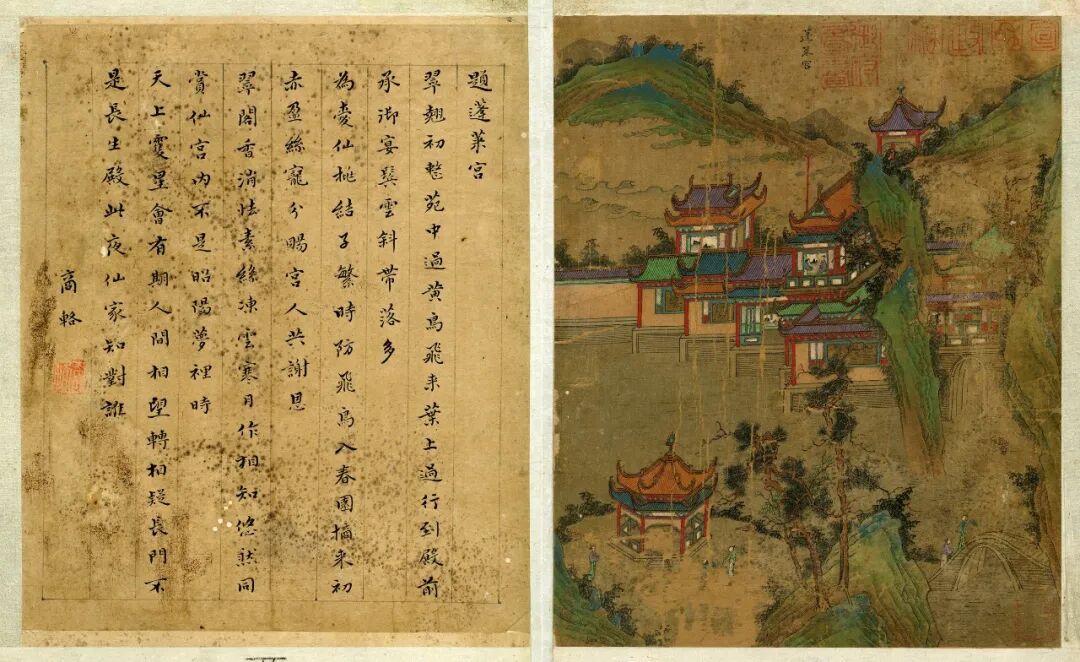 題蓬萊宮
翠翹初整苑中過黃鳥飛來葉上過行到殿前
承御宴鬓雲斜帶落多
為愛仙桃結子繁時防飛鳥入春園摘來初
赤盈絲寵分賜宮人共謝恩
翠閣香消怯素絲凍雲寒月作相知悠然同
賞仙宮內不是昭陽夢裡時
天上雙星會有期人間相望轉相疑長門不
是長生殿此夜仙家知對誰
商輅
蓬萊宮